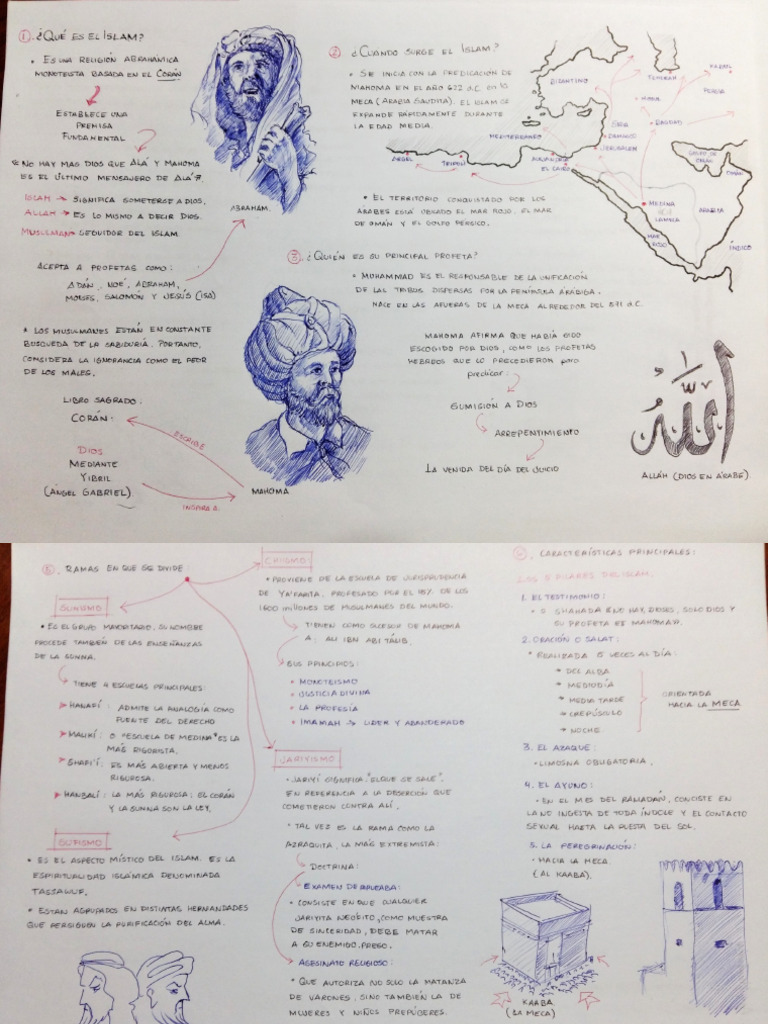 1. ¿Qué es el Islam?
• Es una religión abrahámica
monoteísta basada en el Corán
Establece una
premisa
fundamental
"No hay mas Dios que Alá y Mahoma
es el último mensajero de Alá".
Islam → significa someterse a Dios.
Allah → Es lo mismo a decir Dios.
Musulman → seguidor del Islam
Acepta a profetas como:
Adán, Noé, Abraham,
Moises, Salomón y Jesús (Isa)
• Los musulmanes están en constante
busqueda de la sabiduría. Portanto,
considera la ignorancia como el peor
de los males.
Libro sagrado:
Corán:
Dios
Mediante
Yibril
(Ángel Gabriel)
Escribe
Inspira a
Mahoma
Abraham.
2 ¿Cuando surge el Islam?
• Se inicia con la predicación de
Mahoma en el año 622 d.C. en la
Meca (Arabia Saudita). El Islam se
expande rápidamente durante
la edad media.
• El territorio conquistado por los
árabes está ubicado el mar rojo, el mar
de Omán y el golfo pérsico.
Bizantino
Teheran
Kabul
Persia
Siria
Bagdad
Damasco
Mediterraneo
Jerusalem
Argel
Tripoli
Alejandría
El Cairo
Golfo de
Omán
Omán
Medina
La Meca
Arabia
Mar
Rojo
Índico
3. ¿Quién es su principal profeta?
• Mohammad es el responsable de la unificación
de las tribus dispersas por la península arábiga.
Nace en las afueras de la Meca alrededor del 571 d.C.
Mahoma afirma que había sido
escogido por Dios, como los profetas
hebreos que lo precedieron para
predicar:
Sumisión a Dios
Arrepentimiento
La venida del día del juicio
الله
Alláh (Dios en árabe)
5. Ramas en que se divide
Sunismo
• Es el grupo mayoritario. Su nombre
procede también de las enseñanzas
de la Sunna.
Tiene 4 escuelas principales:
Hanafí: Admite la analogía como
fuente del derecho
Malikí: o "escuela de Medina" es la
más rigorista.
Shafi'í: es más abierta y menos
rigurosa.
Hanbalí: la más rigurosa: el Corán
y la Sunna son la ley.
Sufismo
• Es el aspecto místico del Islam. Es la
espiritualidad islámica denominada
Tassawuf.
• Estan agrupados en distintas hermandades
que persiguen la purificación del alma.
Chiismo:
• Proviene de la escuela de jurisprudencia
de Ya'farita, profesado por el 15% de los
1600 millones de musulmanes del mundo.
Tienen como sucesor de Mahoma
a: Ali Ibn Abi Talib.
Sus principios:
• Monoteísmo
• Justicia divina
• La profesía
• Imamah → lider y abanderado
Jariyismo
• Jariyí significa: "el que se sale".
En referencia a la deserción que
cometieron contra Alí.
• Tal vez es la rama como la
Azraquita, la más extremista:
Doctrina:
• Examen de
• Consiste en que cualquier
jariyita neófito, como muestra
de sinceridad, debe matar
a un enemigo preso.
• Asesinato religioso:
• Que autoriza no solo la matanza
de varones, sino también la de
mujeres y niños prepúberes.
Características principales:
Los 5 pilares del Islam.
1. El testimonio:
• o Shahada "No hay Dioses, solo Dios y
su profeta es Mahoma".
2. Oración o Salat:
• Realizada 5 veces al día:
→ Del alba
→ Mediodía
→ Media tarde
→ Crepúsculo
→ Noche
Orientada
hacia la Meca
3. El Azaque:
• Limosna obligatoria.
4. El Ayuno:
• En el mes del Ramadán, consiste en
la no ingesta de toda índole y el contacto
sexual hasta la puesta del sol.
5. La peregrinación:
• Hacia la Meca
(Al Kaaba).
Kaaba
(La Meca)